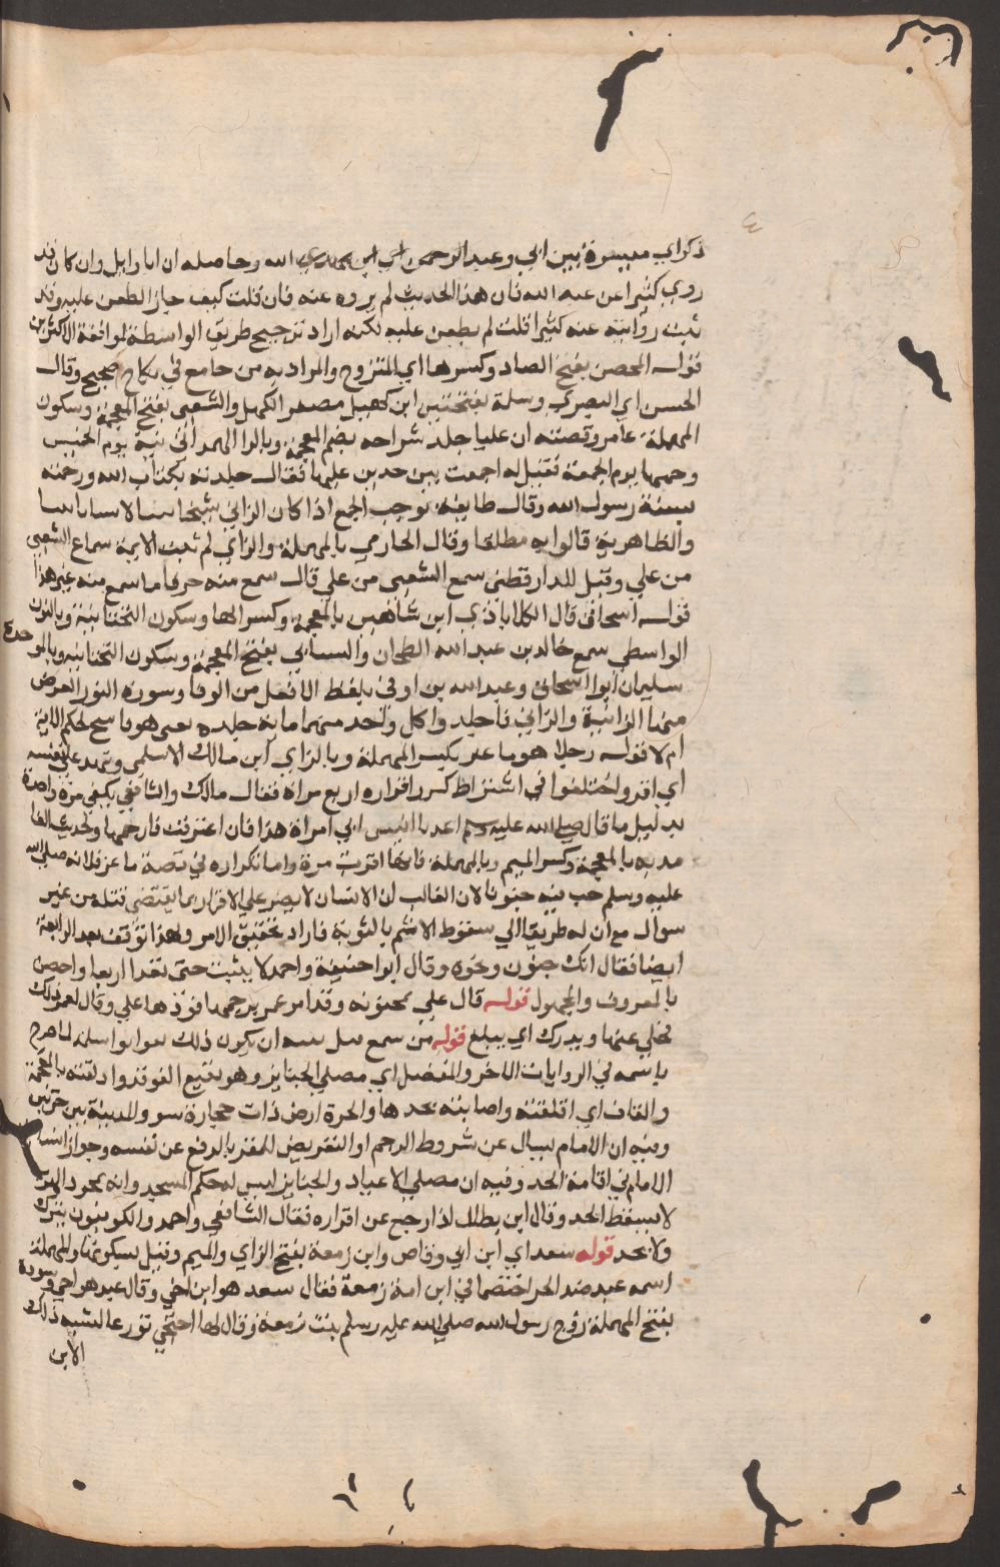 ذكر اي ميسرة بين ابي وعبد الرحمن اي ابن الله وحاصله ان ابا وايل وان كان قد
روي كثيرا عن عبد الله فان هذا الحديث لم يروه عنه فان قلت كيف جاز الطعن عليه وقد
ثبت روايته عنه كثيرا قلت لم يطعن عليه لكنه اراد ترجيح طريق الواسطة لموافقة الاكثرين
قوله المحصن بفتح الصاد وكسرها اي المتزوج والمراد به من جامع في نكاح صحيح وقال
الحسن اي البصري وسلمة بفتحتين ابن كهيل مصغر الكهل والشعبي بفتح المعجمة وسكون
المهملة عامر وقصته ان عليا جلد شراحه بضم المعجمة وبالرا الهمدانية يوم الخميس
ورجمها يوم الجمعة فقيل له اجمعت بين حدين عليها فقال جلدته بكتاب الله ورجمته
بسنة رسول الله وقال طايفة يوجب الجمع اذا كان الزاني شيخا لا شابا
والظاهرية قالوا به مطلقا وقال الحازمي بالمهملة والزاي لم تثبت الايمة سماع الشعبي
من علي وقيل للدارقطني سمع الشعبي من علي قال سمع منه حرفا ما سمع منه غير هذا
قوله اسحاق قال الكلاباذي ابن شاهين بالمعجمة وكسر الها وسكون التحتانية وبالنون
الواسطي سمع خالد بن عبد الله الطحان والشيباني بفتح المعجمة وسكون التحتانية وبالموحدة
سليمان ابو اسحاق وعبد الله بن اوفي بلفظ الافعل من الوفا وسورة النور الغرض
منها الزانية والزاني فاجلدوا كل واحد منهما ماية جلدة يعني هو ناسخ لحكم الاية
ام لا قوله رجلا هو ماعز بكسر المهملة وبالزاي ابن مالك الاسلمي وشهد علي نفسه
اي اقر واختلفوا في اشتراط تكرر اقراره اربع مراة فقال مالك والشافعي يكفي مرة واحدة
بدليل ما قال صلي الله عليه وسلم اغد يا انيس الي امراة هذا فان اعترفت فارجمها ولحديث الغا
مديه بالمعجمة وكسر الميم وبالمهملة فانها اقرت مرة واما تكراره في قصة ماعز فلانه صلي الله
عليه وسلم حسب فيه جنونا لان الغالب ان الانسان لا يصر علي الاقرار بما يقتضي قتله من غير
سوال مع ان له طريقا الي سقوط الاثم بالتوبة فاراد تحقيق الامر ولهذا توقف بعد الرابعة
ايضا فقال ابك جنون ونحوه وقال ابو حنيفة واحمد لا يثبت حتي يقر اربعا واحصن
بالمعروف والمجهول قوله قال علي مجنونه وقد امر عمر برجمها فوذها علي وقال لعمر ذلك
فخلي عنها ويدرك اي يبلغ قوله من سمع ان يكون ذلك هو ابو سلمة لما صرح
باسمه في الروايات الاخر والمفصل اي مصلي الجنايز وهو بقيع الغرقد واذلقته بالمعجمة
والقاف اي اقلقته واصابته بحدها والحرة ارض ذات حجارة سود والمدينة بين حرتين
وفيه ان الامام يسال عن شروط الرجم او التعريض للمقر بالرفع عن نفسه وجواز استنابة
الامام في اقامة الحد وفيه ان مصلي الاعياد والجنايز ليس له حكم المسجد وانه بمجرد الهرب
لا يسقط الحد وقال ابن بطال اذا رجع عن اقراره فقال الشافعي واحمد والكوفيون يترك
ولا يحد قوله سعد اي ابن ابي وقاص وابن زمعة بفتح الزاي والميم وقيل بسكونها وبالمهملة
اسمه عبد ضد الحر اختصما في ابن امة زمعة فقال سعد هو ابن اخي وقال عبد هو اخي وسودة
بفتح المهملة زوج رسول الله صلي الله عليه وسلم بنت زمعة وقال لها احتجبي تورعا لشبه ذلك
الابن